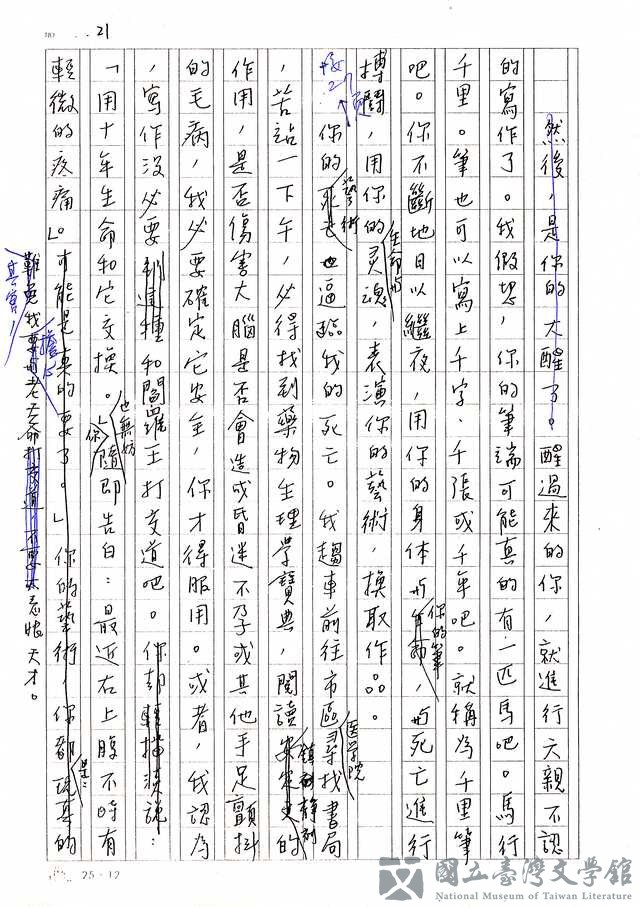 21
然後,是你的大醒了。醒過來的你,就進行六親不認
的寫作了。我假想,你的筆端可能真的有一匹馬吧。馬行
千里。筆也可以寫上千字、千張或千年吧。就稱為千里筆
吧。你不斷地日以繼夜,用你的身体與你的筆,與死亡進行
搏鬪,用你的灵魂,表演你的藝術,換取作品。
生命与
你的死去也逼臨我的死亡。我趨車前往市區尋找書局
藝術
医学院
,苦站一下午,必得找到藥物生理學寶典,閱讀安定更的
鎮靜劑
作用,是否傷害大腦是否會造成昏迷不孕或其他手足顫抖
的毛病,我必要確定它安全,你才得服用。或者,我認為
,寫作沒必要到這種和閻羅王打交道吧。你却輕描淡說:
「用十年生命和它交換。」隨即告白:最近右上腹不時有
也無妨
你
輕微的疼痛」。可能是真的要了。」你的藝術,你都玩真的
是:
其實,
難免我要与老天命打交道,不要太忌恨天才。
擔心
25·12
國立臺灣文學館
National Museum of Taiwan Literature